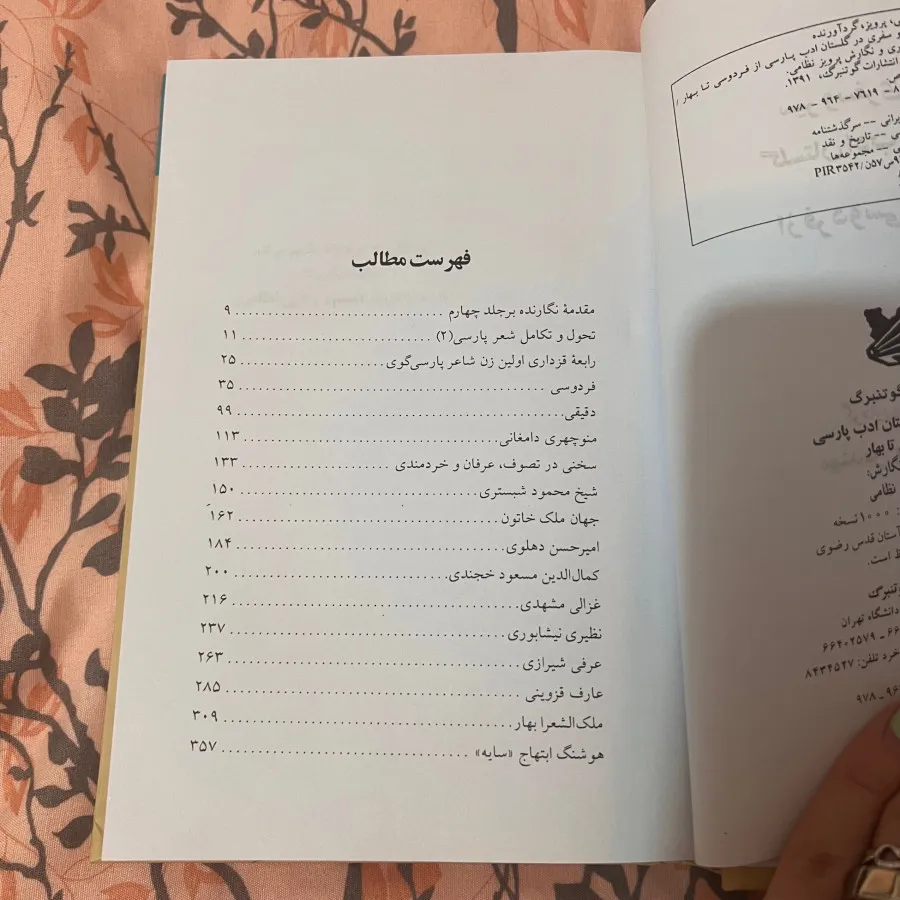 ی، پرویز، گردآورنده
و سفری در گلستان ادب پارسی از فردوسی تا بهار /
ری و نگارش پرویز نظامی.
انتشارات گوتنبرگ، ۱۳۹۱.
ص.
۹۷۸ – ۹۶۴ – ۷۶۱۹ – ۸
یرانی -- سرگذشتنامه
سی -- تاریخ و نقد
ی -- مجموعه‌ها
PIR۳۵۴۲/ن۵۷س۹
گوتنبرگ
تان ادب پارسی
تا بهار
نگارش:
نظامی
: ۱۰۰۰ نسخه
آستان قدس رضوی
ظ است.
وتنبرگ
دانشگاه تهران
۶۶۴۰۲۵۷۹ ـ ۶۶
خرد تلفن: ۸۴۳۴۵۲۷
۹۷۸ ـ ۹۶
فهرست مطالب
مقدمهٔ نگارنده برجلد چهارم ............................... ۹
تحول و تکامل شعر پارسی(۲) ............................ ۱۱
رابعهٔ قزداری اولین زن شاعر پارسی‌گوی ..................... ۲۵
فردوسی .............................................. ۳۵
دقیقی ................................................ ۹۹
منوچهری دامغانی ...................................... ۱۱۳
سخنی در تصوف، عرفان و خردمندی ..................... ۱۳۳
شیخ محمود شبستری ................................... ۱۵۰
جهان ملک خاتون ...................................... ۱۶۲
امیرحسن دهلوی ....................................... ۱۸۴
کمال‌الدین مسعود خجندی ............................... ۲۰۰
غزالی مشهدی ......................................... ۲۱۶
نظیری نیشابوری ....................................... ۲۳۷
عرفی شیرازی ......................................... ۲۶۳
عارف قزوینی ......................................... ۲۸۵
ملک‌الشعرا بهار ........................................ ۳۰۹
هوشنگ ابتهاج «سایه» ................................... ۳۵۷